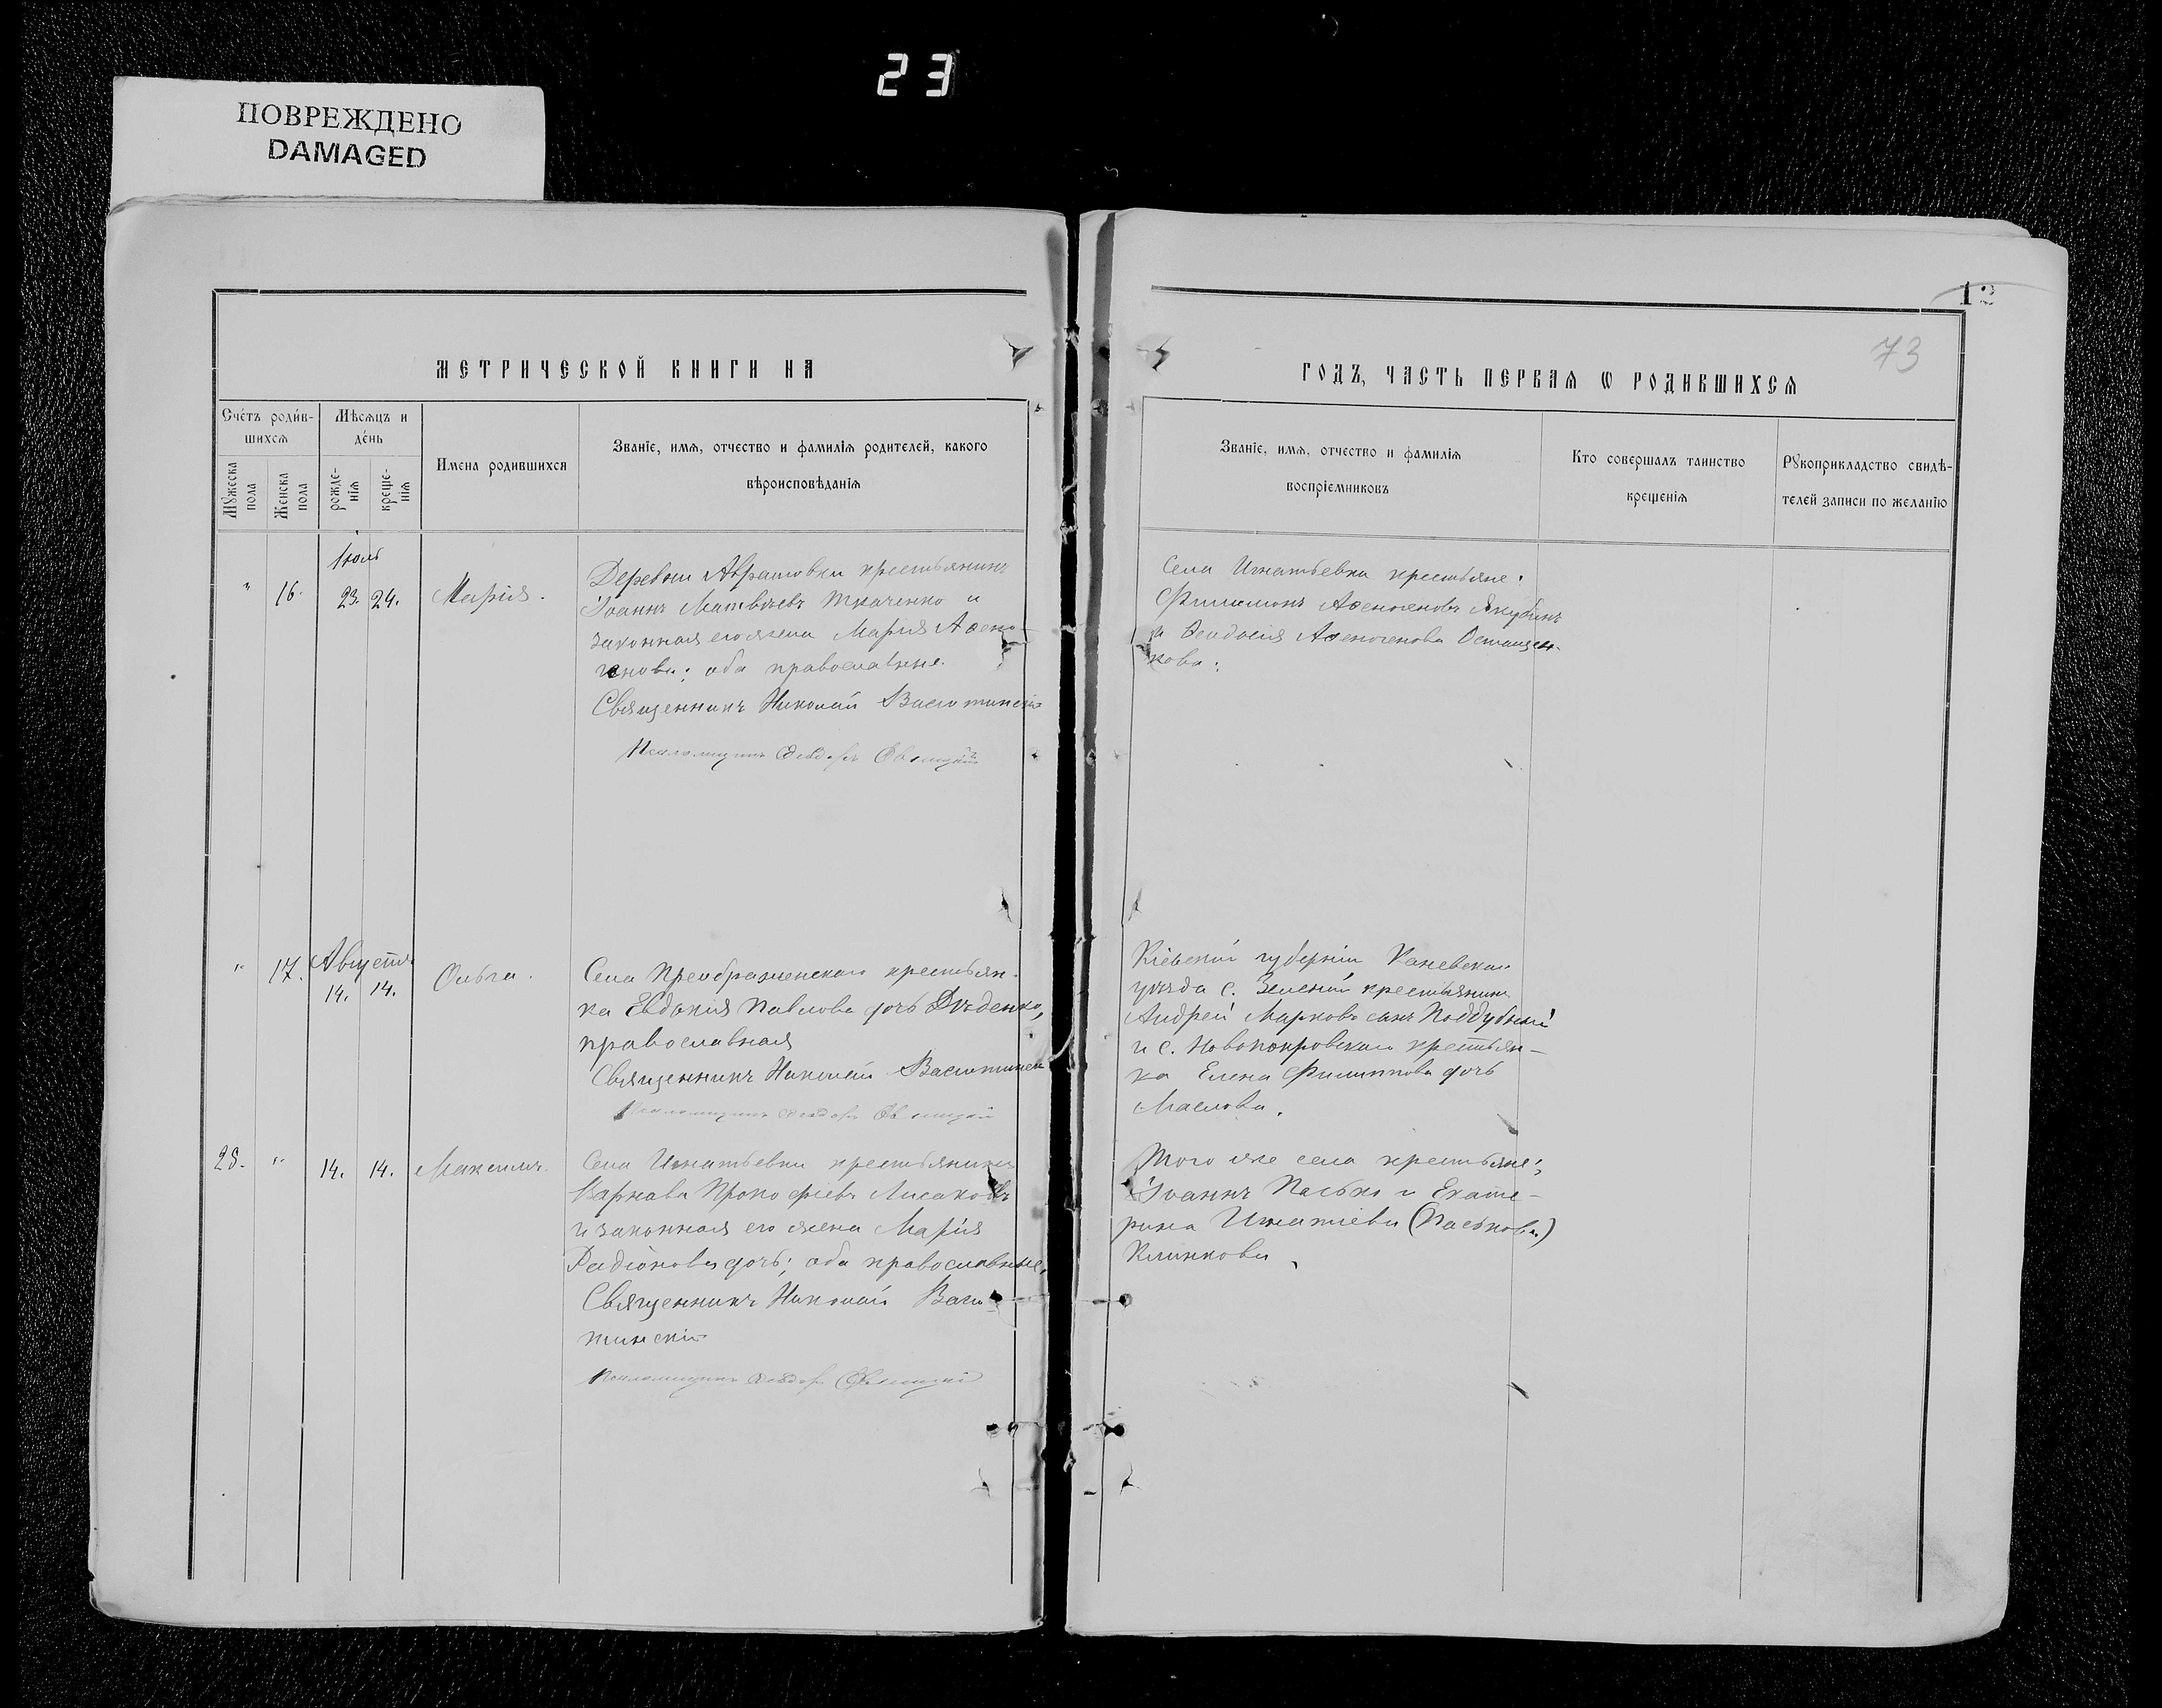 23
ПОВРЕЖДЕНО
DAMAGED
12
73
МЕТРИЧЕСКОЙ КНИГИ НА
ГОДЪ, ЧАСТЬ ПЕРВАѦ Ѡ РОДИВШИХСѦ
Счéтъ роди́в-
шихсѧ
Мужеска
пола
Женска
пола
Мѣсѧцъ и
де́нь
рожде-
нїѧ
креще-
нїѧ
Имена родившихся
Званїе, имѧ, отчество и фамилїѧ родителей, какого
вѣроисповѣданїѧ
Званїе, имѧ, отчество и фамилїѧ
воспрїемниковъ
Кто совершалъ таинство
крещенїѧ
Рꙋкоприкладство свидѣ-
телей записи по желанїю
Іюль
" 16. 23. 24. Марія.
Деревни Аврамовки крестьянинъ
Іоаннъ Матвѣевъ Ткаченко и
законная его жена Марія Аѳено-
генова; оба православные.
Священникъ Николай Васютинскій
Псаломщикъ Ѳеодоръ
Села Игнатьевки крестьяне:
Филимонъ Аѳеногеновъ Якубинъ
и Ѳеодосія Аѳеногенова Остащен-
кова.
Августъ
" 17. 14. 14. Ольга.
Села Преображенскаго крестьян-
ка Евдокія Павлова дочь Дѣденко,
православная
Священникъ Николай Васютинскій
Псаломщикъ Ѳеодоръ
Кіевской губерніи Каневскаго
уѣзда с. Зеленой крестьянинъ
Андрей Марковъ сынъ Поддубный
и с. Новопокровскаго крестьян-
ка Елена Филиппова дочь
Маслова.
28. " 14. 14. Максимъ.
Села Игнатьевки крестьянинъ
Варнава Прокофіевъ Лисаковъ
и законная его жена Марія
Радіонова дочь; оба православные,
Священникъ Николай Васю-
тинскій
Псаломщикъ Ѳеодоръ
Того же села крестьяне:
Іоаннъ Пасько и Екате-
рина Игнатіева (Паськова)
Климкова